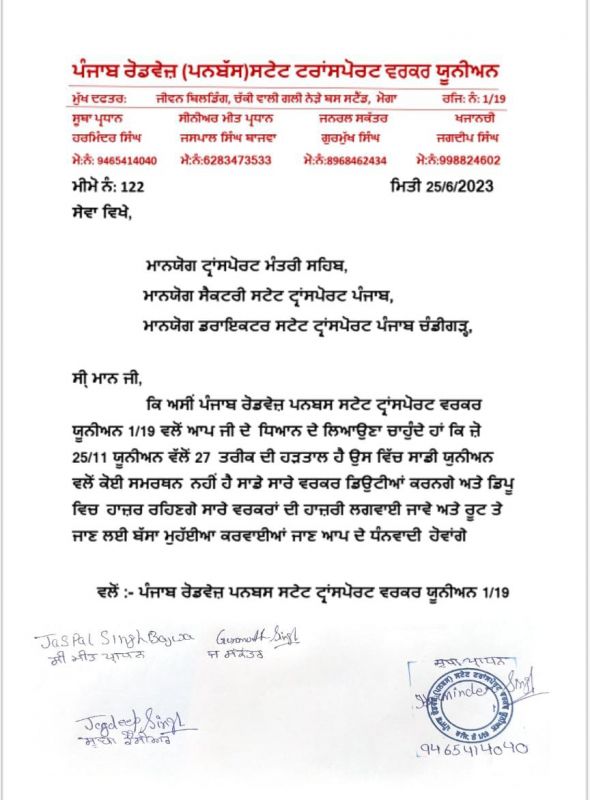 ਪੰਜਾਬ ਰੋਡਵੇਜ਼ (ਪਨਬੱਸ)ਸਟੇਟ ਟਰਾਂਸਪੋਰਟ ਵਰਕਰ ਯੂਨੀਅਨ
ਮੁੱਖ ਦਫਤਰ: ਜੀਵਨ ਬਿਲਡਿੰਗ, ਚੱਕੀ ਵਾਲੀ ਗਲੀ ਨੇੜੇ ਬਸ ਸਟੈਂਡ, ਮੋਗਾ ਰਜਿ: ਨੰ: 1/19
ਸੂਬਾ ਪ੍ਰਧਾਨ ਸੀਨੀਅਰ ਮੀਤ ਪ੍ਰਧਾਨ ਜਨਰਲ ਸਕੱਤਰ ਖਜਾਨਚੀ
ਹਰਮਿੰਦਰ ਸਿੰਘ ਜਸਪਾਲ ਸਿੰਘ ਬਾਜਵਾ ਗੁਰਮੁੱਖ ਸਿੰਘ ਜਗਦੀਪ ਸਿੰਘ
ਮੋ:ਨੰ: 9465414040 ਮੋ:ਨੰ:6283473533 ਮੋ:ਨੰ:8968462434 ਮੋ:ਨੰ:998824602
ਮੀਮੋ ਨੰ: 122 ਮਿਤੀ 25/6/2023
ਸੇਵਾ ਵਿਖੇ,
ਮਾਨਯੋਗ ਟ੍ਰਾਂਸਪੋਰਟ ਮੰਤਰੀ ਸਹਿਬ,
ਮਾਨਯੋਗ ਸੈਕਟਰੀ ਸਟੇਟ ਟ੍ਰਾਂਸਪੋਰਟ ਪੰਜਾਬ,
ਮਾਨਯੋਗ ਡਰਾਇਕਟਰ ਸਟੇਟ ਟ੍ਰਾਂਸਪੋਰਟ ਪੰਜਾਬ ਚੰਡੀਗੜ੍ਹ,
ਸ੍ਰੀ ਮਾਨ ਜੀ,
ਕਿ ਅਸੀਂ ਪੰਜਾਬ ਰੋਡਵੇਜ਼ ਪਨਬਸ ਸਟੇਟ ਟ੍ਰਾਂਸਪੋਰਟ ਵਰਕਰ
ਯੂਨੀਅਨ 1/19 ਵਲੋਂ ਆਪ ਜੀ ਦੇ ਧਿਆਨ ਦੇ ਲਿਆਉਣਾ ਚਾਹੁੰਦੇ ਹਾਂ ਕਿ ਜ਼ੋ
25/11 ਯੂਨੀਅਨ ਵੱਲੋਂ 27 ਤਰੀਕ ਦੀ ਹੜਤਾਲ ਹੈ ਉਸ ਵਿੱਚ ਸਾਡੀ ਯੁਨੀਅਨ
ਵਲੋਂ ਕੋਈ ਸਮਰਥਨ ਨਹੀਂ ਹੈ ਸਾਡੇ ਸਾਰੇ ਵਰਕਰ ਡਿਉਟੀਆਂ ਕਰਨਗੇ ਅਤੇ ਡਿਪੂ
ਵਿਚ ਹਾਜ਼ਰ ਰਹਿਣਗੇ ਸਾਰੇ ਵਰਕਰਾਂ ਦੀ ਹਾਜ਼ਰੀ ਲਗਵਾਈ ਜਾਵੇ ਅਤੇ ਰੂਟ ਤੇ
ਜਾਣ ਲਈ ਬੱਸਾ ਮੁਹੱਈਆ ਕਰਵਾਈਆਂ ਜਾਣ ਆਪ ਦੇ ਧੰਨਵਾਦੀ ਹੋਵਾਂਗੇ
ਵਲੋਂ :- ਪੰਜਾਬ ਰੋਡਵੇਜ਼ ਪਨਬਸ ਸਟੇਟ ਟ੍ਰਾਂਸਪੋਰਟ ਵਰਕਰ ਯੂਨੀਅਨ 1/19
Jaspal Singh Bajwa Gurmukh Singh
ਸੀ ਮੀਤ ਪ੍ਰਧਾਨ ਜ ਸਕੱਤਰ
ਸੂਬਾ ਪ੍ਰਧਾਨ
Singh
Jagdeep Singh
9465414040